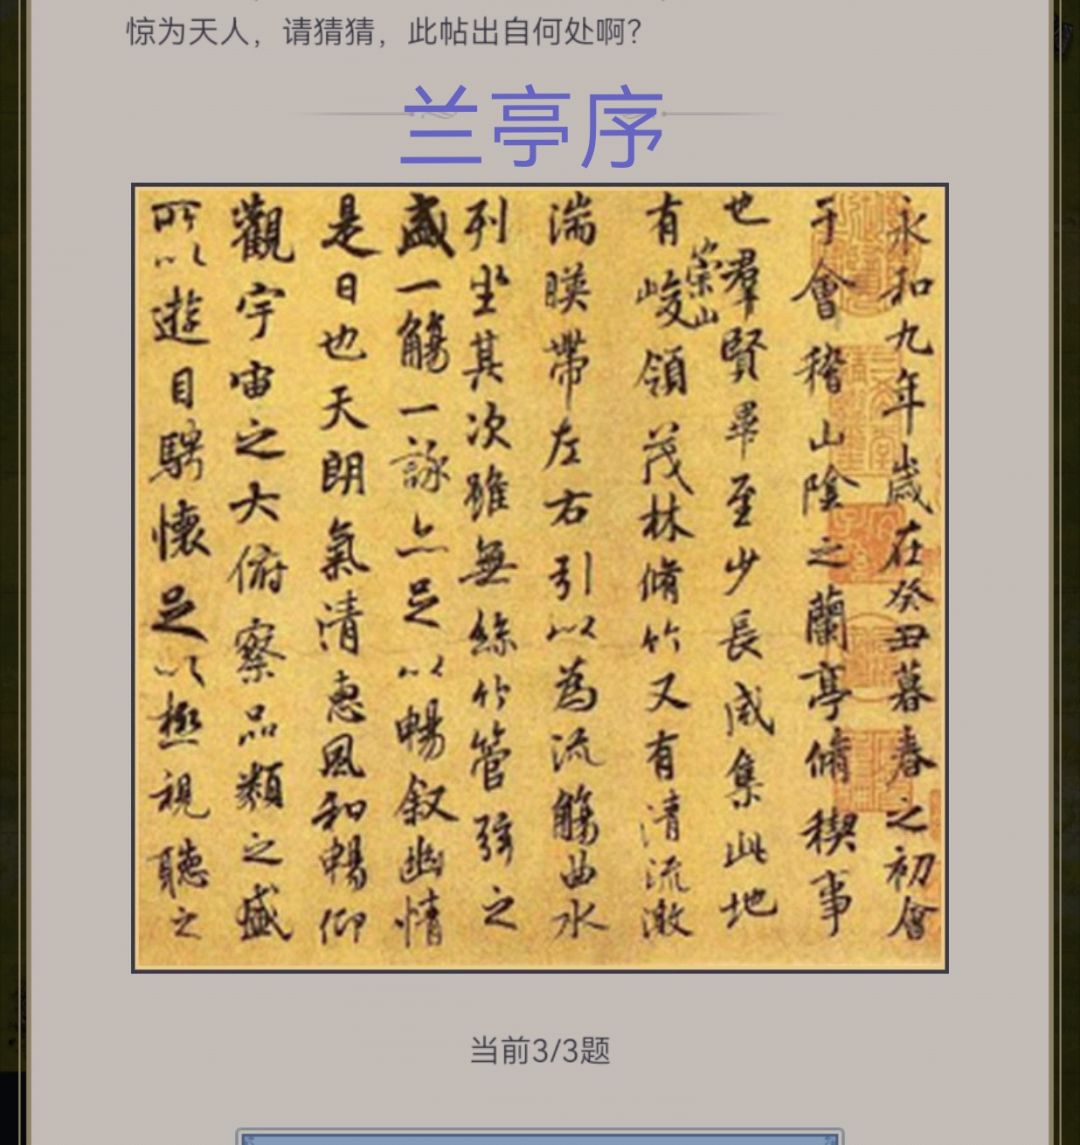 惊为天人，请猜猜，此帖出自何处啊？
兰亭序
永和九年歲在癸丑暮春之初會
于會稽山陰之蘭亭脩稧事
也羣賢畢至少長咸集此地
有崇山峻領茂林脩竹又有清流激
湍暎帶左右引以為流觴曲水
列坐其次雖無絲竹管弦之
盛一觴一詠亦足以暢叙幽情
是日也天朗氣清惠風和暢仰
觀宇宙之大俯察品類之盛
所以遊目騁懷足以極視聽之
当前3/3题